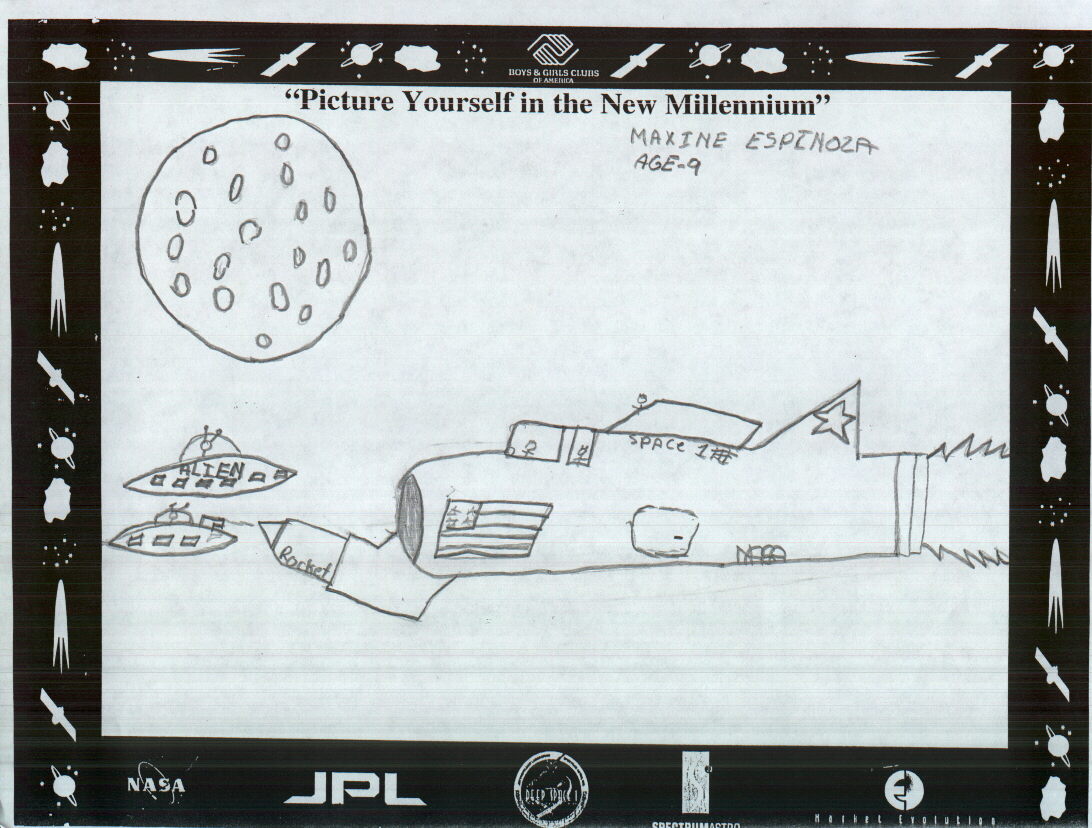 BOYS & GIRLS CLUBS
OF AMERICA
“Picture Yourself in the New Millennium”
MAXINE ESPINOZA
AGE-9
SPACE 1
ALIEN
Rocket
NASA
NASA
JPL
DEEP SPACE 1
SPECTRUMASTRO
Market Evolution